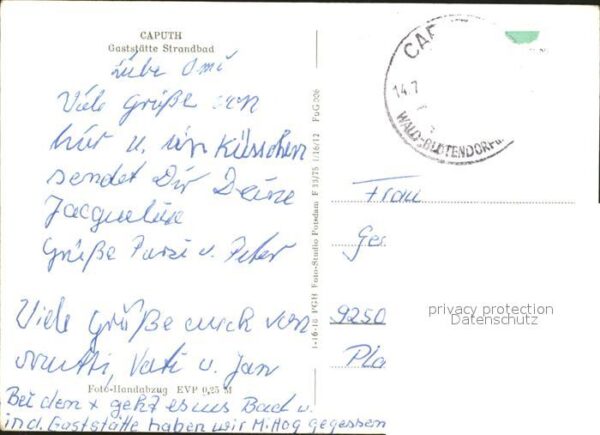 CAPUTH
Gaststätte Strandbad
Liebe Omi
Viele Grüße von
hier u. ein Küsschen
sendet Dir Deine
Jacqueline
Grüße Purzi u. Peter
Viele Grüße auch von
Mutti, Vati u. Jan
Foto-Handabzug EVP 0,25 M
Bei dem x geht es ins Bad u.
in d. Gaststätte haben wir M.ttag gegessen
1-16-18 PGH Foto-Studio Potsdam F 33/75 1/16/12 FuG 006
CAP
14.7
WALD-BLÜTENDORF
Frau
Ger
9250
Pla
privacy protection
Datenschutz